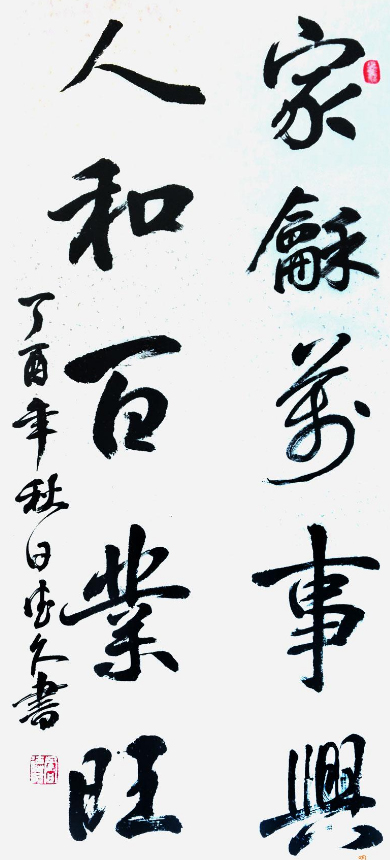 家龢萬事興
人和百業旺
丁酉年秋日 久書